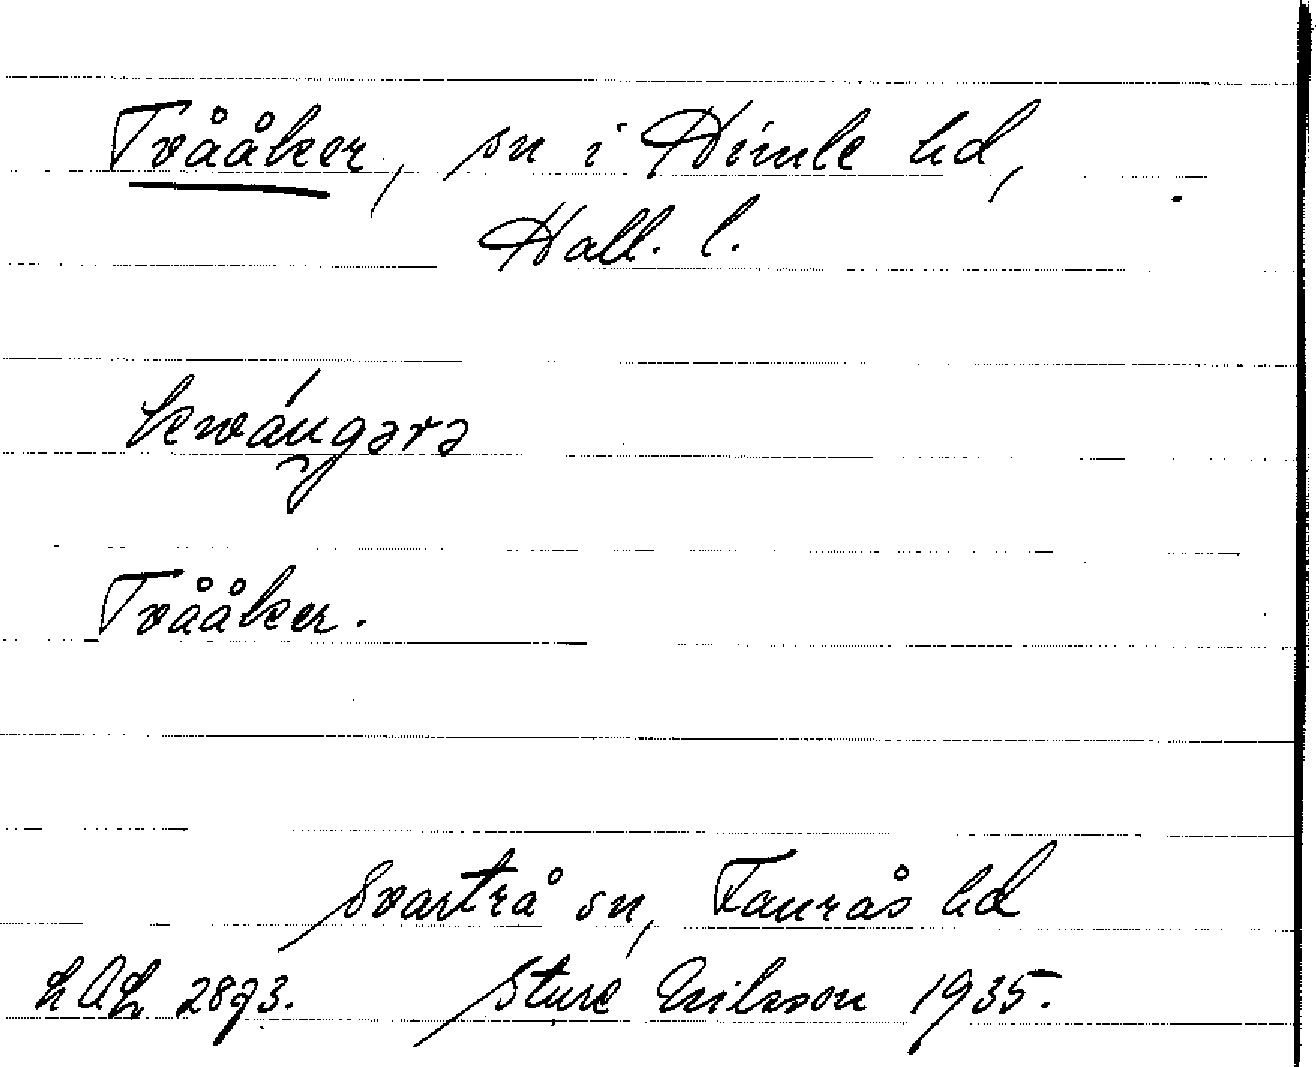 Tvååker, sn i Himle hd,
Hall. l.
Tvååker.
Svartrå sn, Faurås hd
LAL 2873. Sture Eriksson 1935.